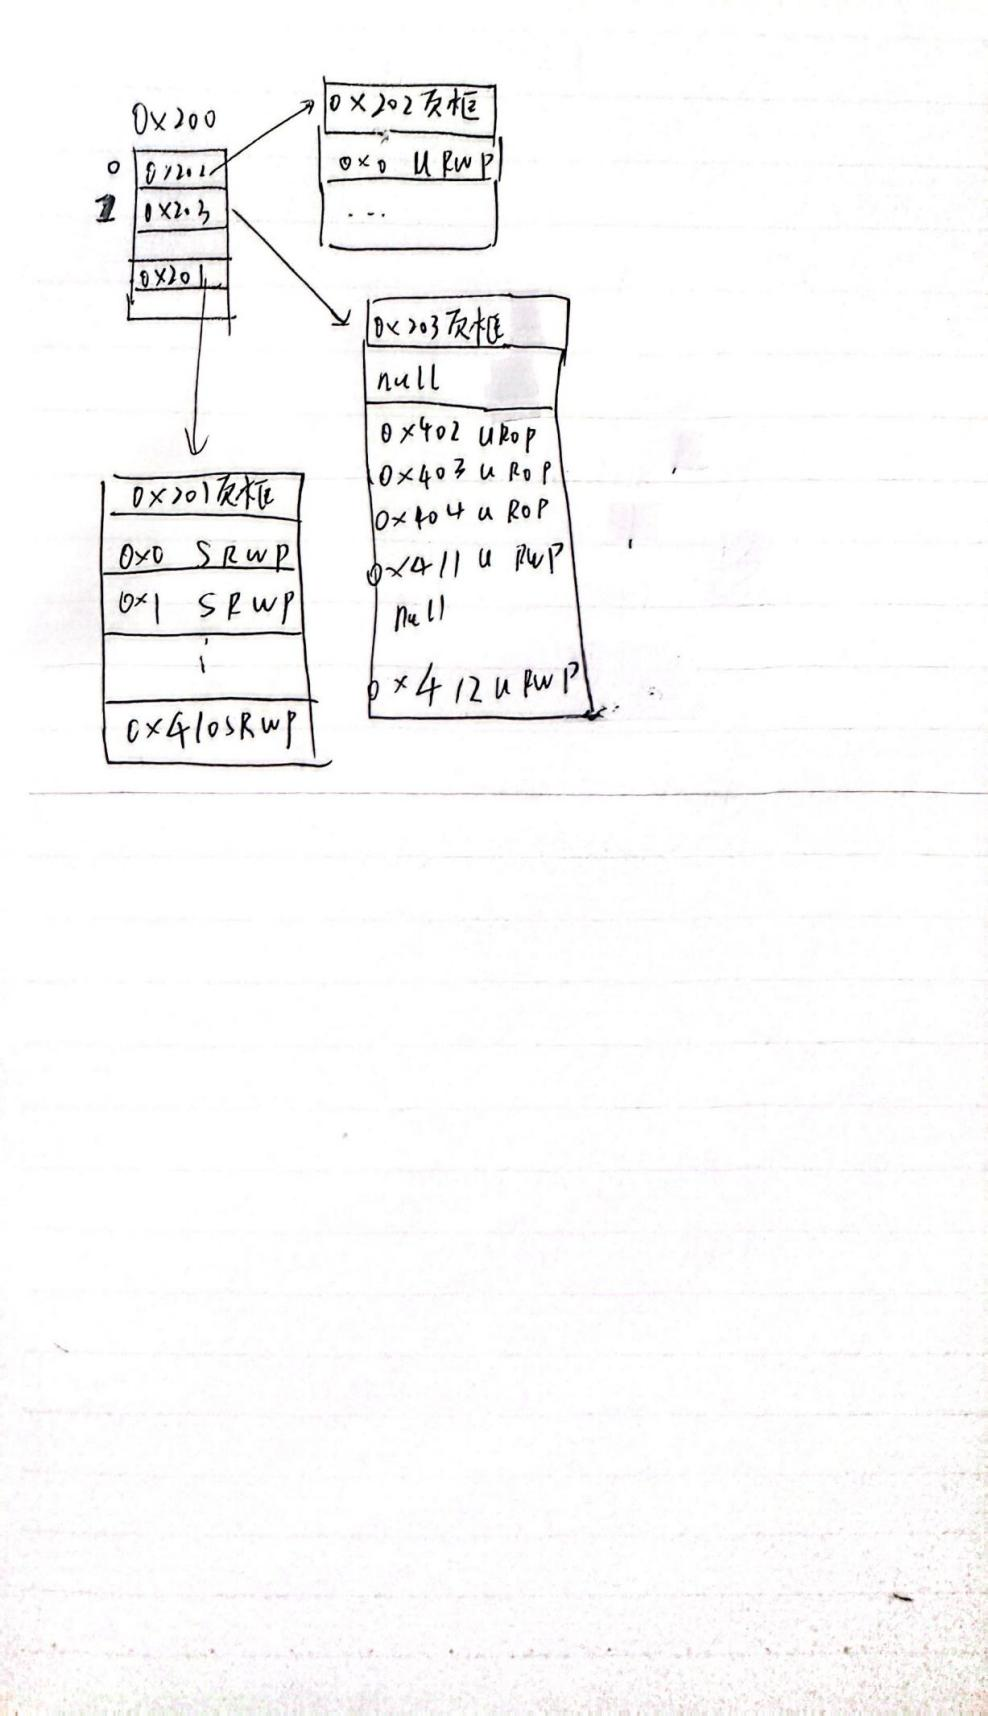 0x200
0 0x202
1 0x203
0x201
0x202页框
0x0 U RWP
...
0x203页框
null
0x402 U ROP
0x403 U ROP
0x404 U ROP
0x411 U RWP
null
0x412 U RWP
0x201页框
0x0 S RWP
0x1 S RWP
⋮
0x410 S RWP